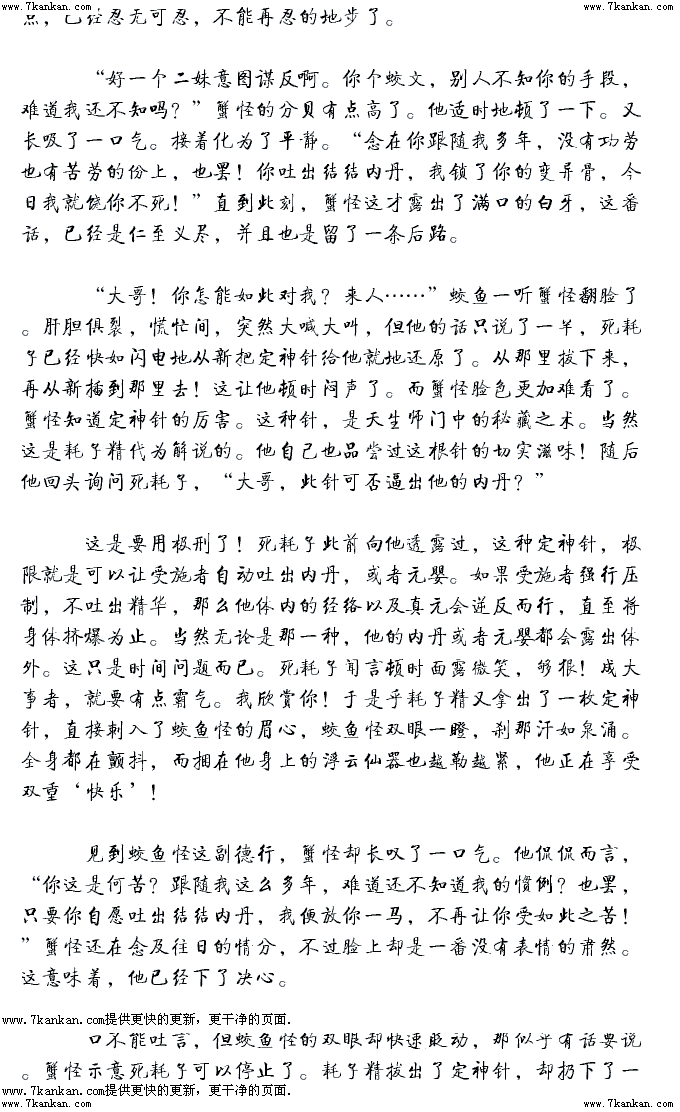 www.7kankan.com www.7kankan.com
点，已经忍无可忍，不能再忍的地步了。
“好一个二妹意图谋反啊。你个蛟文，别人不知你的手段，
难道我还不知吗？”蟹怪的分贝有点高了。他适时地顿了一下。又
长吸了一口气。接着化为了平静。“念在你跟随我多年，没有功劳
也有苦劳的份上，也罢！你吐出结结内丹，我锁了你的变异骨，今
日我就饶你不死！”直到此刻，蟹怪这才露出了满口的白牙，这番
话，已经是仁至义尽，并且也是留了一条后路。
“大哥！你怎能如此对我？来人……”蛟鱼一听蟹怪翻脸了
。肝胆俱裂，慌忙间，突然大喊大叫，但他的话只说了一半，死耗
子已经快如闪电地从新把定神针给他就地还原了。从那里拔下来，
再从新插到那里去！这让他顿时闷声了。而蟹怪脸色更加难看了。
蟹怪知道定神针的厉害。这种针，是天生师门中的秘藏之术。当然
这是耗子精代为解说的。他自己也品尝过这根针的切实滋味！随后
他回头询问死耗子，“大哥，此针可否逼出他的内丹？”
这是要用极刑了！死耗子此前向他透露过，这种定神针，极
限就是可以让受施者自动吐出内丹，或者元婴。如果受施者强行压
制，不吐出精华，那么他体内的经络以及真元会逆反而行，直至将
身体挤爆为止。当然无论是那一种，他的内丹或者元婴都会露出体
外。这只是时间问题而已。死耗子闻言顿时面露微笑，够狠！成大
事者，就要有点霸气。我欣赏你！于是乎耗子精又拿出了一枚定神
针，直接刺入了蛟鱼怪的眉心，蛟鱼怪双眼一瞪，刹那汗如泉涌。
全身都在颤抖，而捆在他身上的浮云仙器也越勒越紧，他正在享受
双重‘快乐’！
见到蛟鱼怪这副德行，蟹怪却长叹了一口气。他侃侃而言，
“你这是何苦？跟随我这么多年，难道还不知道我的惯例？也罢，
只要你自愿吐出结结内丹，我便放你一马，不再让你受如此之苦！
”蟹怪还在念及往日的情分，不过脸上却是一番没有表情的肃然。
这意味着，他已经下了决心。
www.7kankan.com提供更快的更新，更干净的页面.
口不能吐言，但蛟鱼怪的双眼却快速眨动，那似乎有话要说
。蟹怪示意死耗子可以停止了。耗子精拔出了定神针，却扔下了一
www.7kankan.com提供更快的更新，更干净的页面.
www.7kankan.com www.7kankan.com